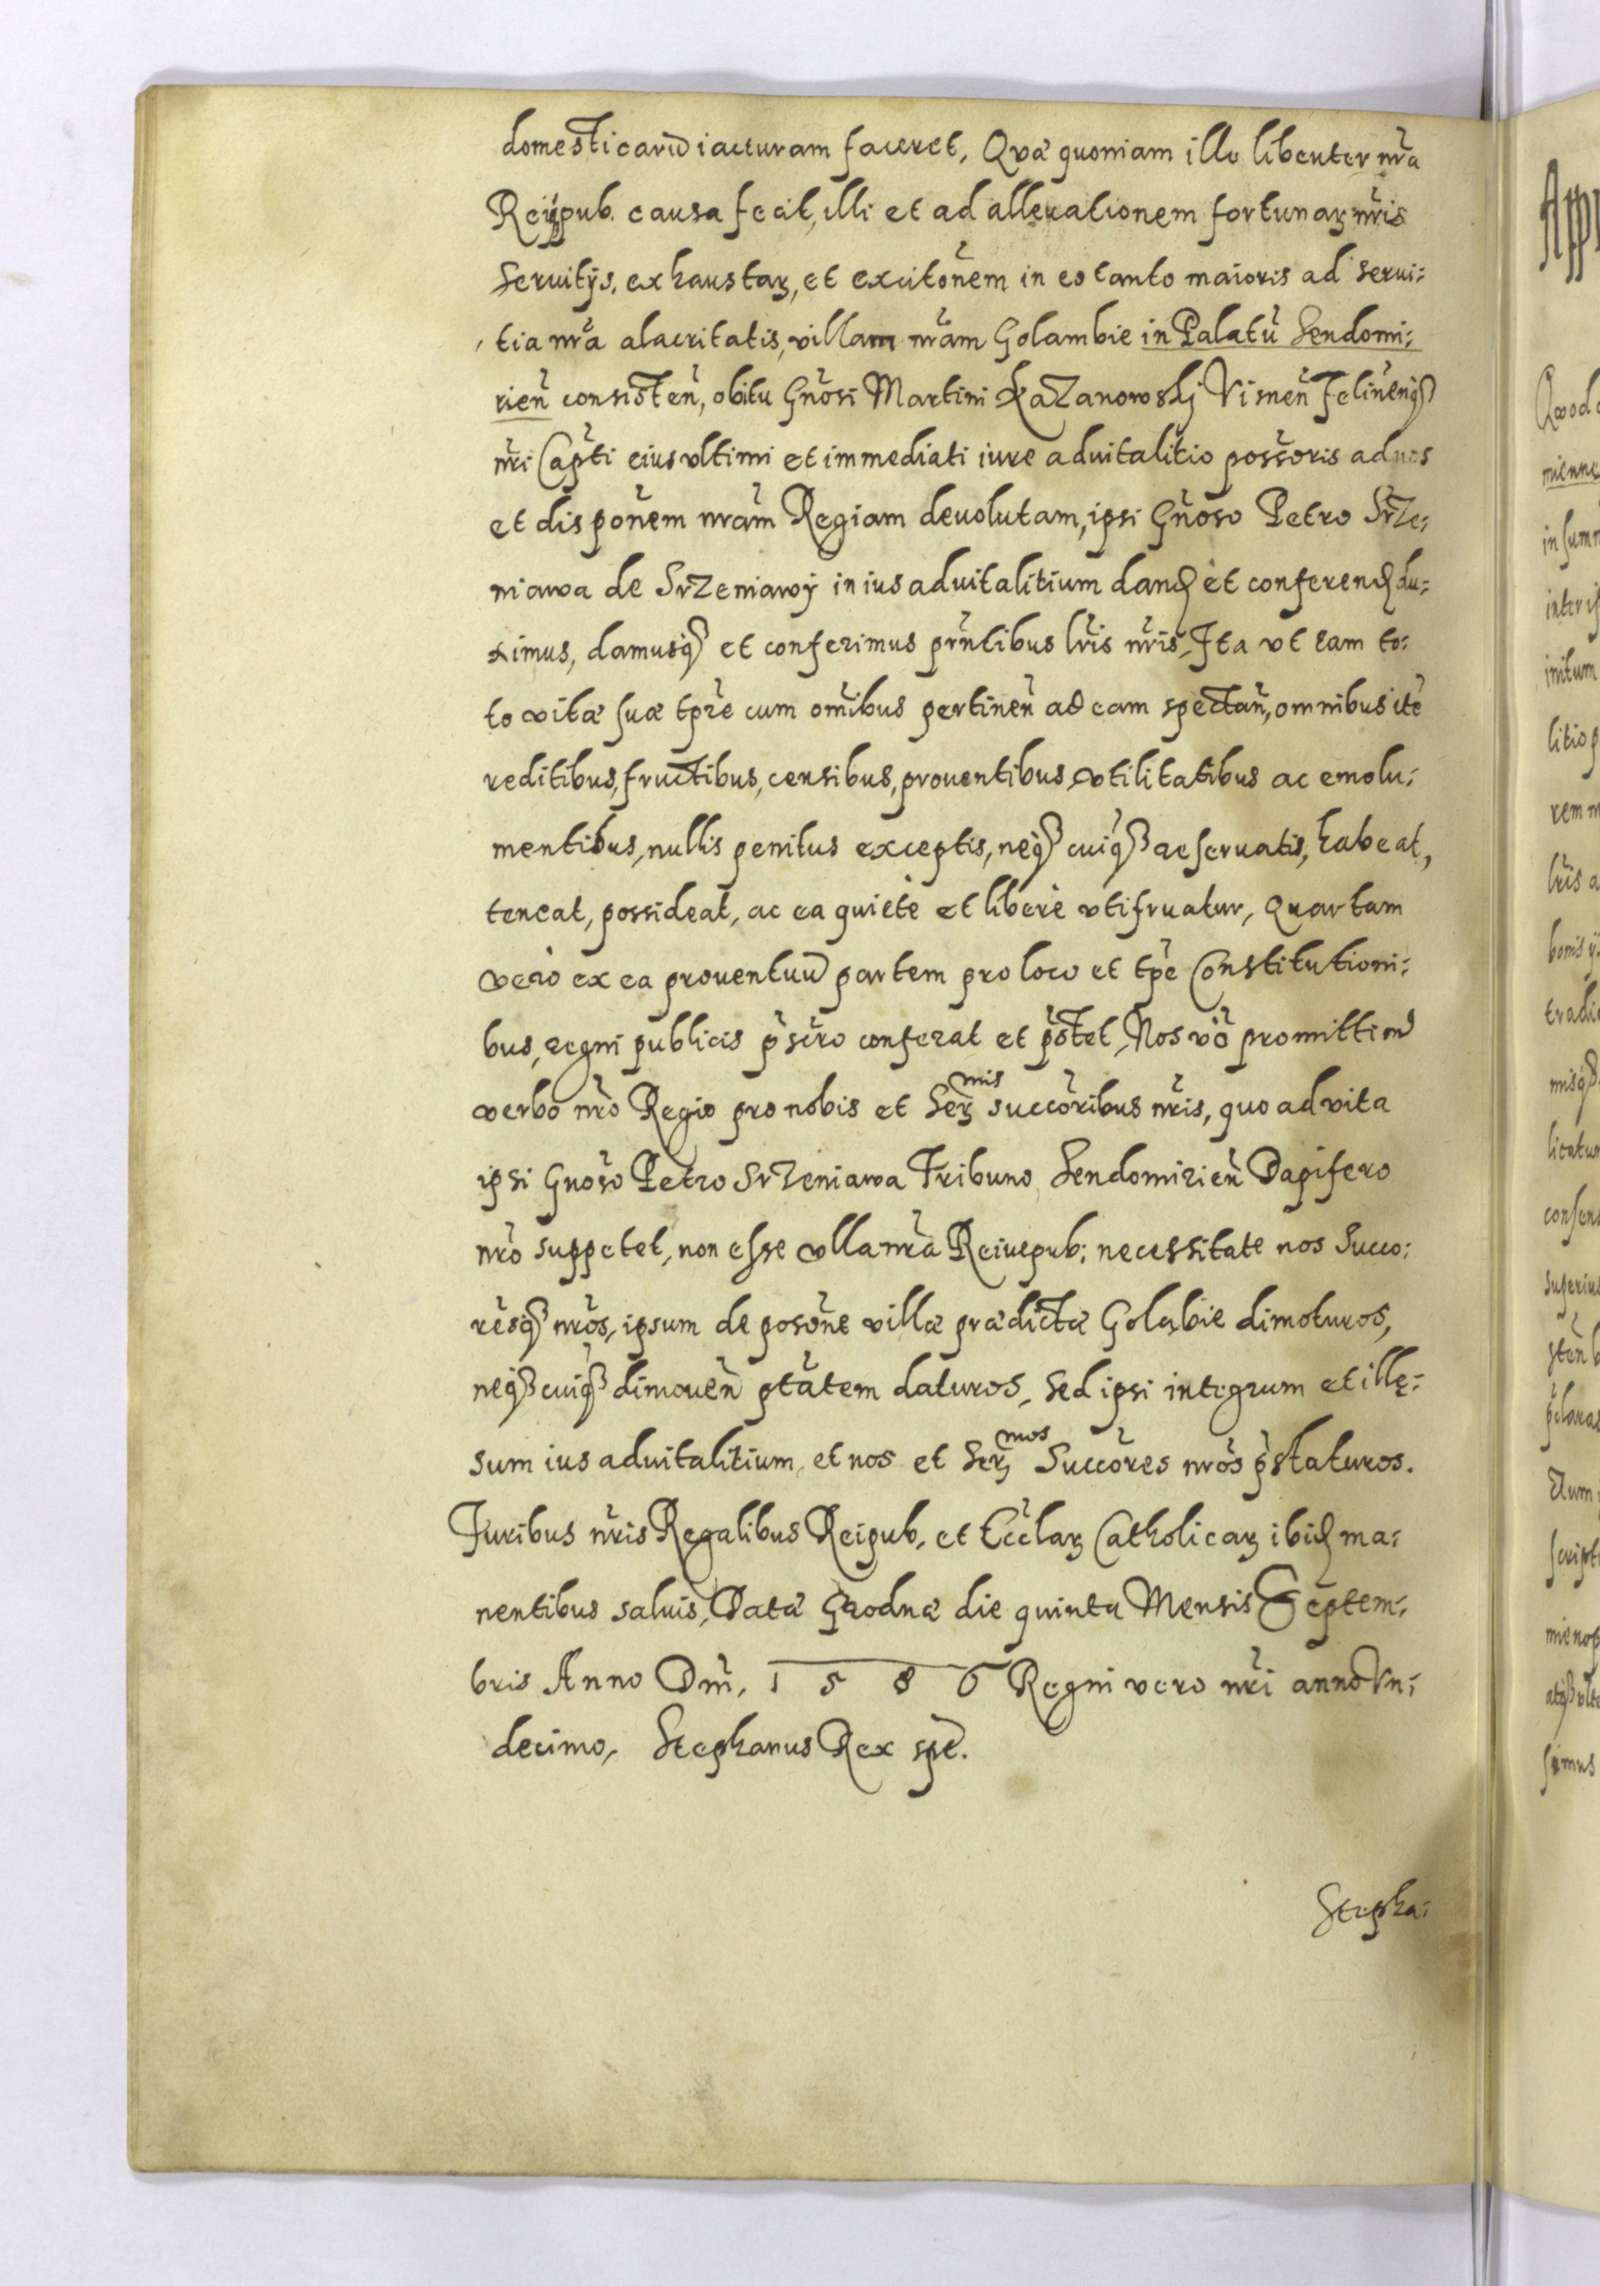 domesticarũ iacturam faceret, Quæ quoniam ille libenter nrã
Reiqpub. causa fecit, illi et ad alleuationem fortunarꝫ nrĩs
Seruitÿs, exhaustarꝫ, et excitõnem in eo tanto maioris ad serui:
tia nrã alacritatis, villam nrãm Golambie in Palatũ Sendomi:
rieñ consisteñ, obitu Gñosi Martini Kazanowskÿ Visneñ Felineñqꝫ
nrĩ Capt̃i eius vltimi et immediati iure aduitalitio possõris ad nos
et disponẽm nrãm Regiam deuolutam, ipsi Gñoso Petro Srze:
niawa de Srzeniawÿ in ius aduitalitium dandꝫ et conferendꝫ du:
ximus, damusqꝫ et conferimus prñtibus lrĩs nrĩs, Ita vt eam to:
to vitæ suæ tpr̃e cum omĩbus pertineñ ad eam spectañ, omnibus itẽ
reditibus, fructibus, censibus, prouentibus, vtilitatibus ac emolu:
mentibus, nullis penitus exceptis, neqꝫ cuiqꝫ reseruatis, habeat,
teneat, possideat, ac ea quiete et liberè vtifruatur, Quartam
verò ex ea prouentuũ partem pro loco et tpẽ Constitutioni:
bus, regni publicis p̃scr̃o conferat et p̃stet, Nos võ promittimꝰ
verbo nrõ Regio pro nobis et Serꝫ mis succõribus nrĩs, quo ad vita
ipsi Gnõso Petro Srzeniawa Tribuno Sendomirieñ Dapifero
nrõ suppetet, non esse vlla nrã Reiuepub: necessitate nos Succo:
rẽsqꝫ nrõs, ipsum de posõne villæ prædictæ Goląbie dimoturos,
neqꝫ cuiqꝫ dimoueñ ptãtem daturos, sed ipsi integrum et illę:
sum ius aduitalitium, et nos et Serꝫ mos Succõres nrõs p̃staturos.
Iuribus nrĩs Regalibus Reipub. et Eccl̃arꝫ Catholicarꝫ ibidꝫ ma:
nentibus saluis, Datæ Grodnæ die quinta Mensis Septem:
bris Anno Dm̃, 1 5 8 6 Regni vero nrĩ anno Vn:
decimo, Stephanus Rex spẽ.
Stepha: